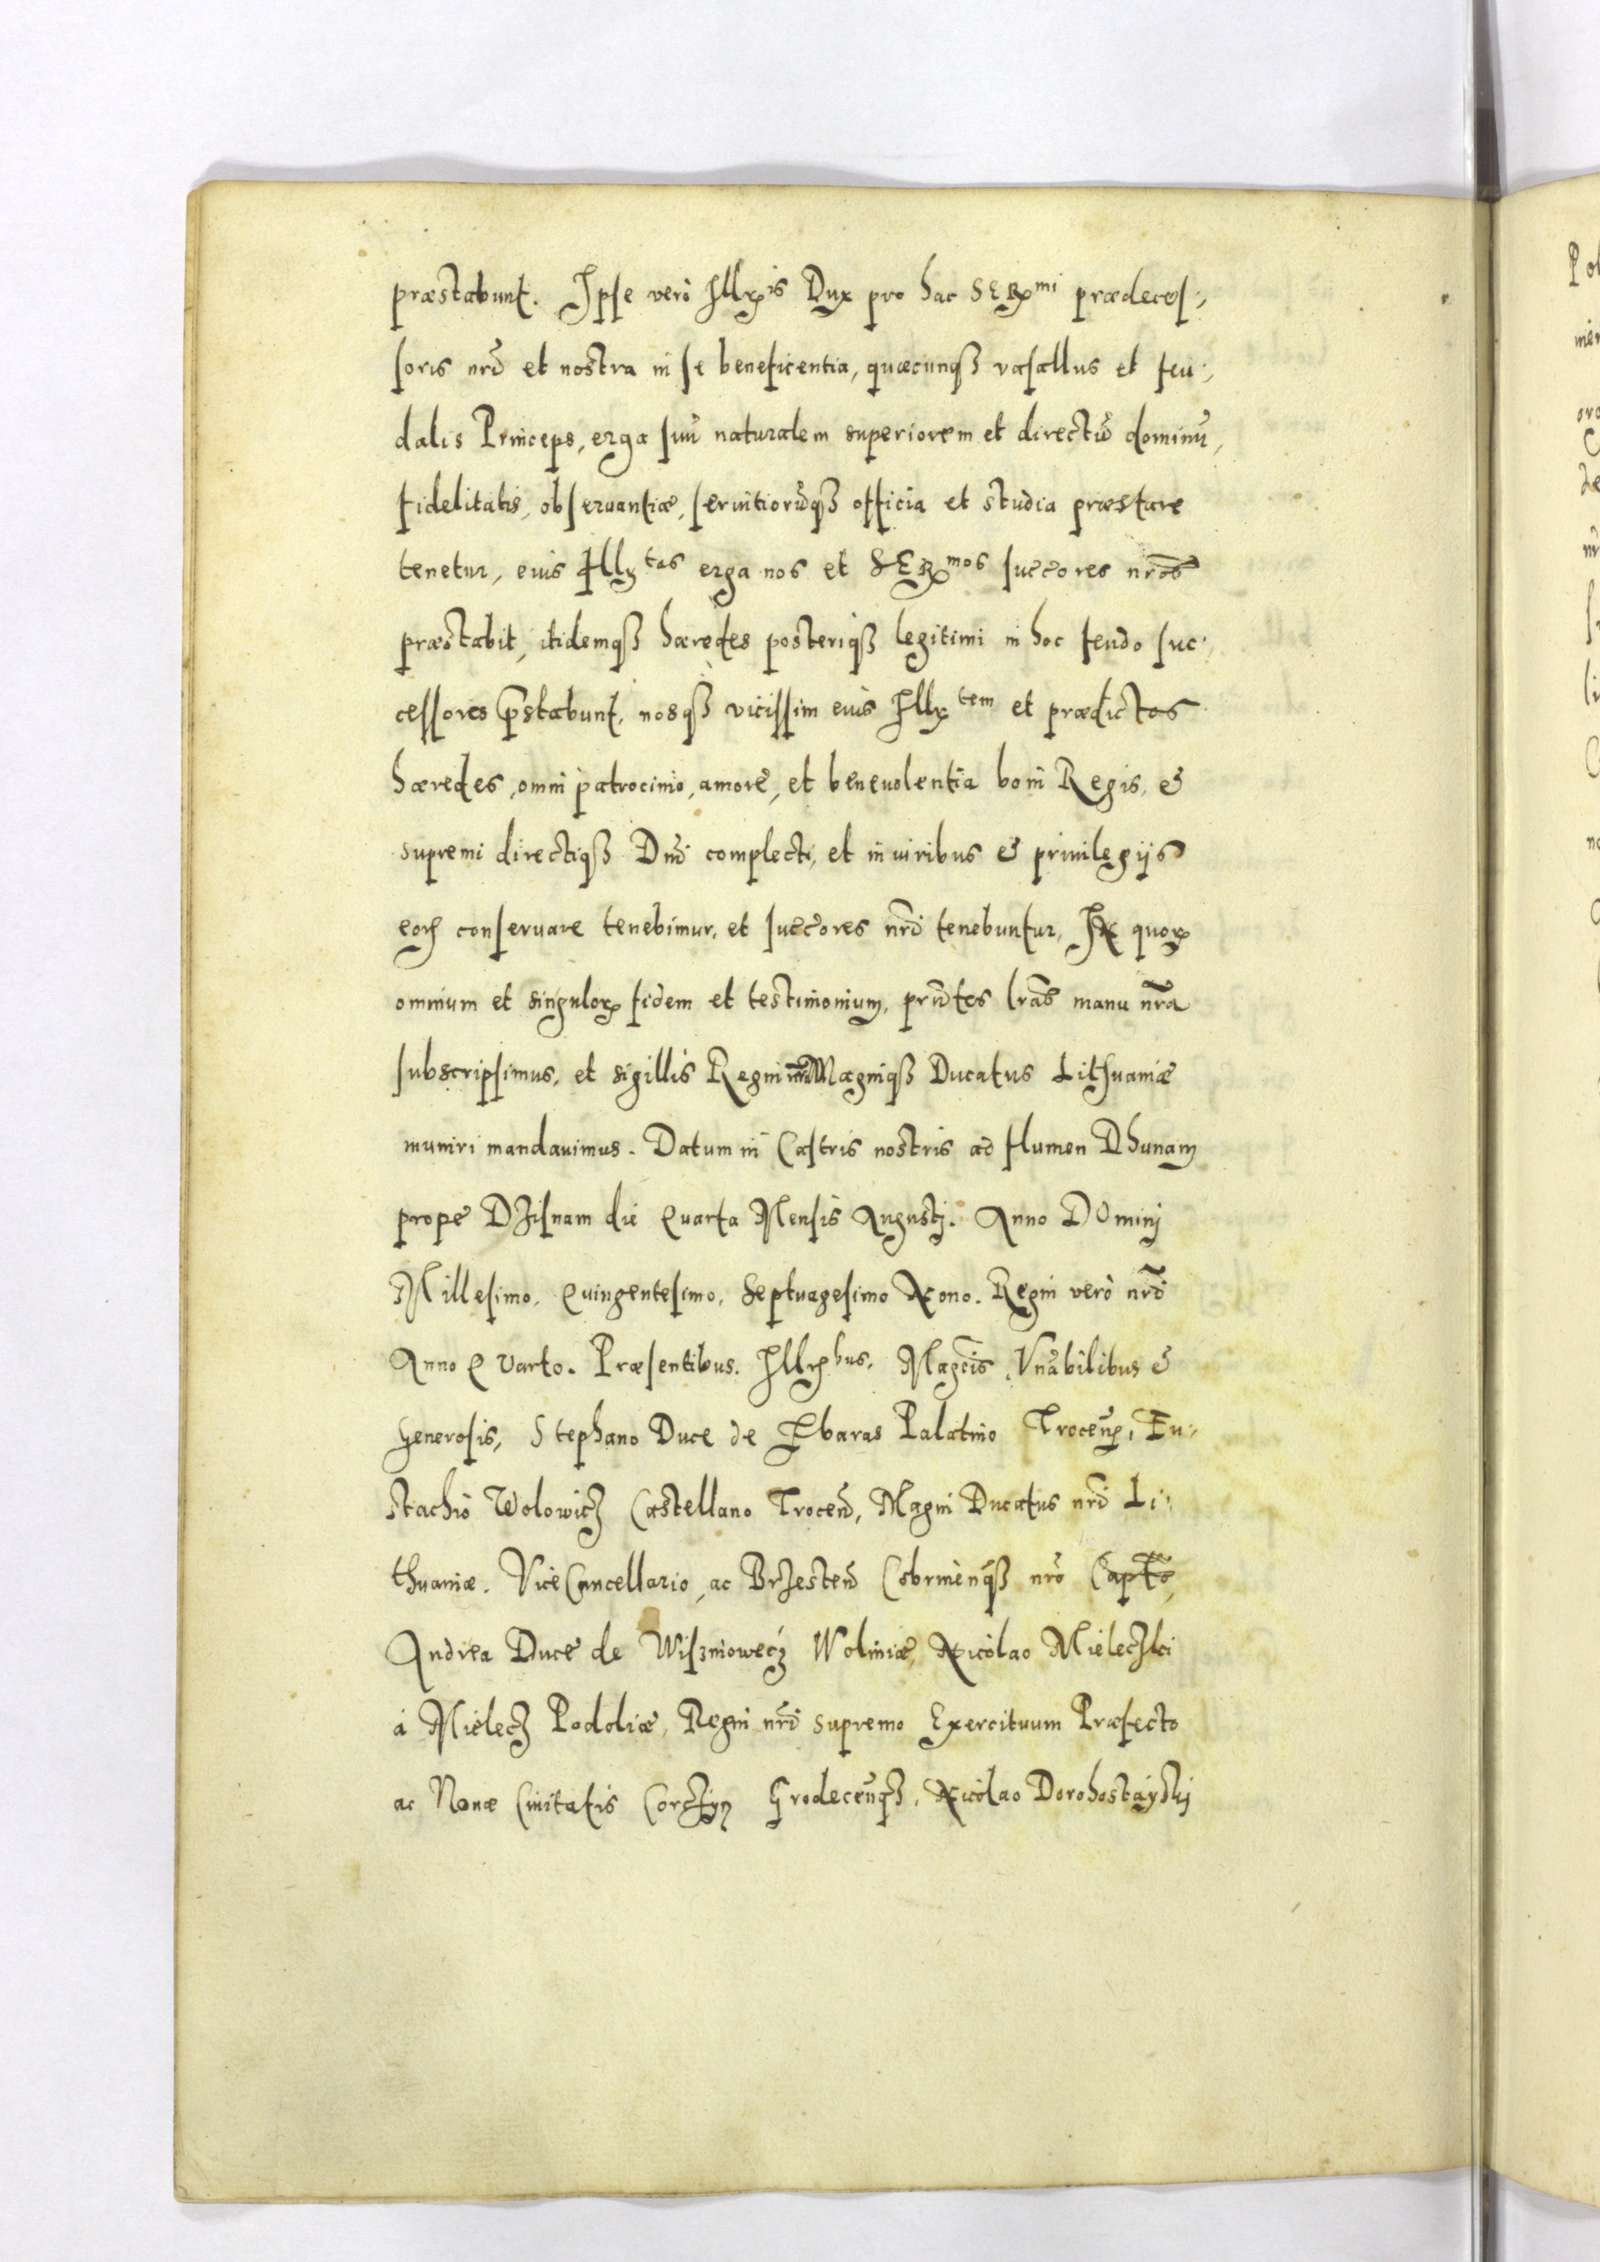 præstabunt. Ipse verò Illris Dux pro hac SERmi prædeces⸗
soris nrĩ et nostra in se beneficentia, quæcunqꝫ vasallus et feu⸗
dalis Princeps, erga suũ naturalem superiorem et directũ dominũ,
fidelitatis, observantiæ, servitiorũqꝫ officia et studia præstare
tenetur, eius Illtas erga nos et SERmos succores nrõs
præstabit, itidemqꝫ hæredes posteriqꝫ legitimi in hoc feudo suc⸗
cessores p̃stabunt, nosqꝫ vicissim eius Illtem et prædictos
hæredes, omni patrocinio, amore, et benevolentia boni Regis, &
supremi directiqꝫ Dnĩ complecti, et in viribus & privilegijs
eoꝝ conservare tenebimur, et succores nrĩ tenebuntur, In quoꝝ
omnium et singuloꝝ fidem et testimonium, prñtes lrãs manu nrã
subscripsimus, et sigillis Regni nrĩ Magniqꝫ Ducatus Lithuaniæ
muniri mandavimus. Datum in Castris nostris ad flumen Dhunam
prope Dzisnam die Quarta Mensis Augusti. Anno DOmini
Millesimo, Quingentesimo, Septuagesimo Nono. Regni verò nrĩ
Anno Quarto. Præsentibus. Illrbus, Magcis, Vnãbilibus &
Generosis, Stephano Duce de Sbaras Palatino Trocen̄, Eu⸗
stachio Wolowicz Castellano Trocen̄, Magni Ducatus nrĩ Li⸗
thuaniæ. ViceCancellario, ac Brzesten̄ Cobrinen̄qꝫ nrõ Captõ,
Andrea Duce de Wiszniowecz Woliniæ, Nicolao Mieleczki
á Mielecz Podoliæ, Regni nrĩ supremo Exercituum Præfecto
ac Novæ Civitatis Corczyn Grodecen̄qꝫ, Nicolao Dorohostayski